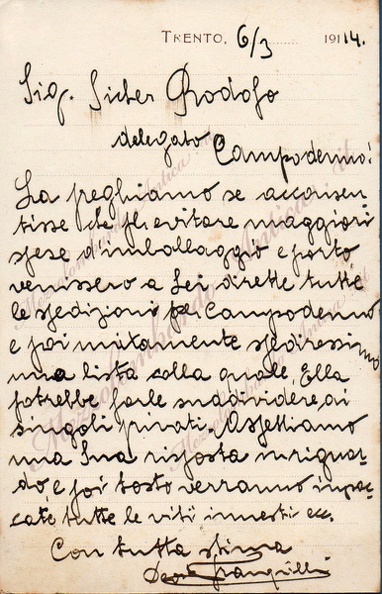 TRENTO, 6/3 19114.
Sig. Sicher Rodolfo
delegato Campodenno!
La preghiamo se acconsen
tisse che per evitare maggiori
spese d'imballaggio e porto
venissero a Lei dirette tutte
le spedizioni per Campodenno
e poi unitamente spediressimo
una lista colla quale, Ella
potrebbe farle suddividere ai
singoli privati. Aspettiamo
una Sua risposta in riguar-
do, e poi tosto verranno impac
cate tutte le viti innesti ecc.
Con tutta stima